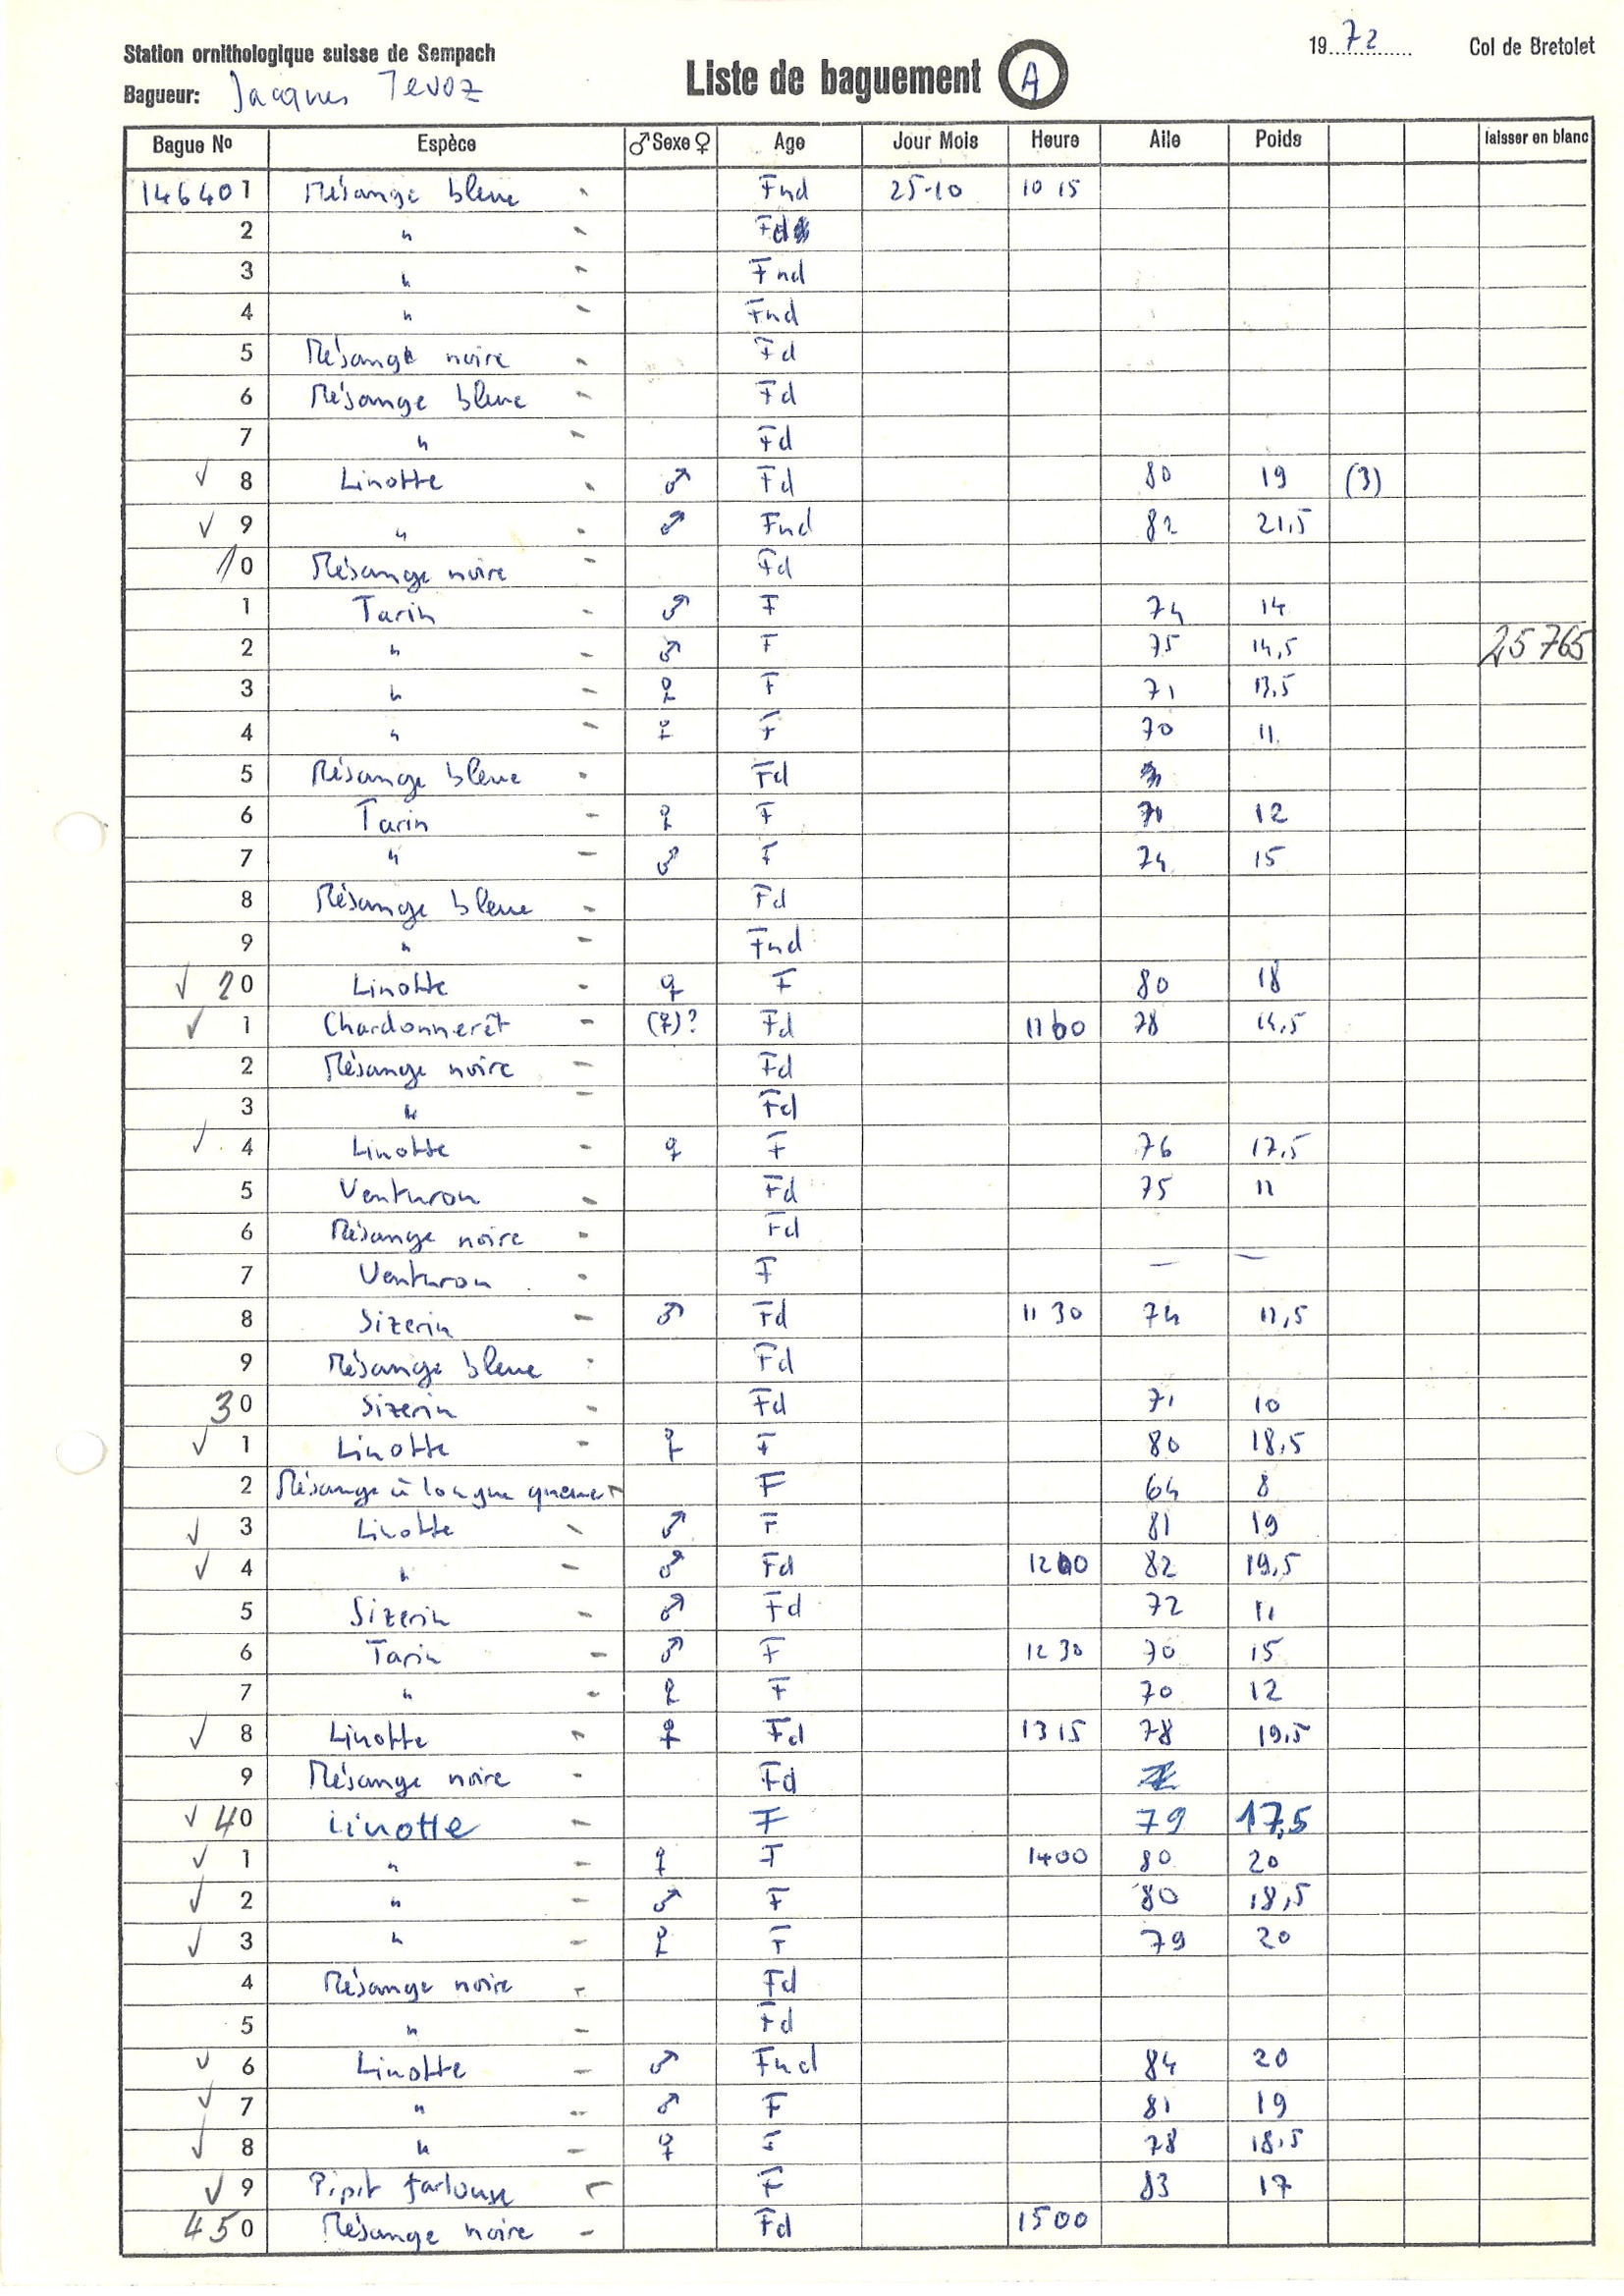 Station ornithologique suisse de Sempach
1972 Col de Bretolet
Liste de baguement A
Bagueur: Jacques
Bague No Espèce ♂ Sexe ♀ Age Jour Mois Heure Aile Poids laisser en blanc
146401 Mésange bleue - Fnd 25-10 10 15
2 " - Fd
3 " - Fnd
4 " - Fnd
5 Mésange noire - Fd
6 Mésange bleue - Fd
7 " - Fd
✓ 8 Linotte - ♂ Fd 80 19 (3)
✓ 9 " - ♂ Fnd 82 21,5
10 Mésange noire - Fd
1 Tarin - ♂ F 74 14
2 " - ♂ F 75 14,5 25765
3 " - ♀ F 71 13,5
4 " - ♀ F 70 11
5 Mésange bleue - Fd
6 Tarin - ♀ F 71 12
7 " - ♂ F 74 15
8 Mésange bleue - Fd
9 " - Fnd
✓ 20 Linotte - ♀ F 80 18
✓ 1 Chardonneret - (♀)? Fd 11 00 78 14,5
2 Mésange noire - Fd
3 " - Fd
✓ 4 Linotte - ♀ F 76 17,5
5 Venturon - Fd 75 11
6 Mésange noire - Fd
7 Venturon - F — —
8 Sizerin - ♂ Fd 11 30 74 11,5
9 Mésange bleue - Fd
30 Sizerin - Fd 71 10
✓ 1 Linotte - ♀ F 80 18,5
2 Mésange à longue - F 64 8
✓ 3 Linotte - ♂ F 81 19
✓ 4 " - ♂ Fd 1200 82 19,5
5 Sizerin - ♂ Fd 72 11
6 Tarin - ♂ F 12 30 70 15
7 " - ♀ F 70 12
✓ 8 Linotte - ♀ Fd 13 15 78 19,5
9 Mésange noire - Fd
✓ 40 Linotte - F 79 17,5
✓ 1 " - ♀ F 1400 80 20
✓ 2 " - ♂ F 80 18,5
✓ 3 " - ♀ F 79 20
4 Mésange noire - Fd
5 " - Fd
✓ 6 Linotte - ♂ Fnd 84 20
✓ 7 " - ♂ F 81 19
✓ 8 " - ♀ F 78 18,5
✓ 9 Pipit farlouse - F 83 17
450 Mésange noire - Fd 1500